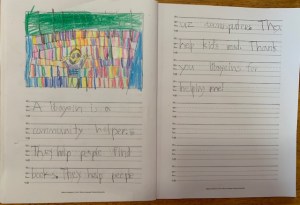 A librarian is a
community helper.
They help people find
books. They help people
use computers. They
help kids read. Thank
you librarians for
helping me!